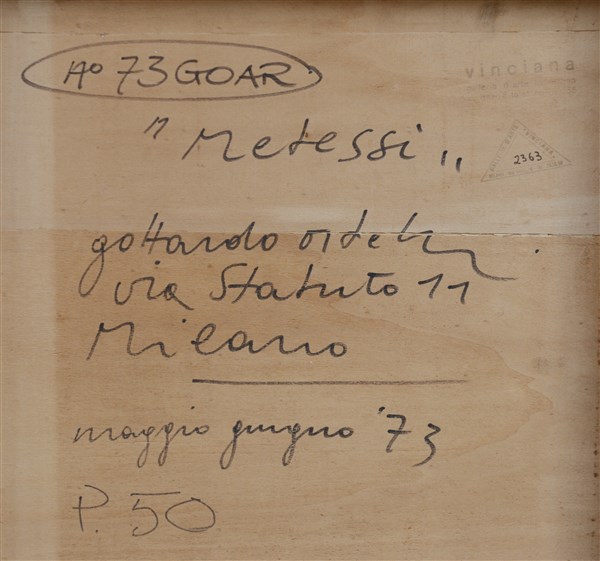 vinciana
A° 73 GOAR.
2363
" Metessi "
gottardo ortelli
via Statuto 11
Milano
maggio giugno '73
P. 50